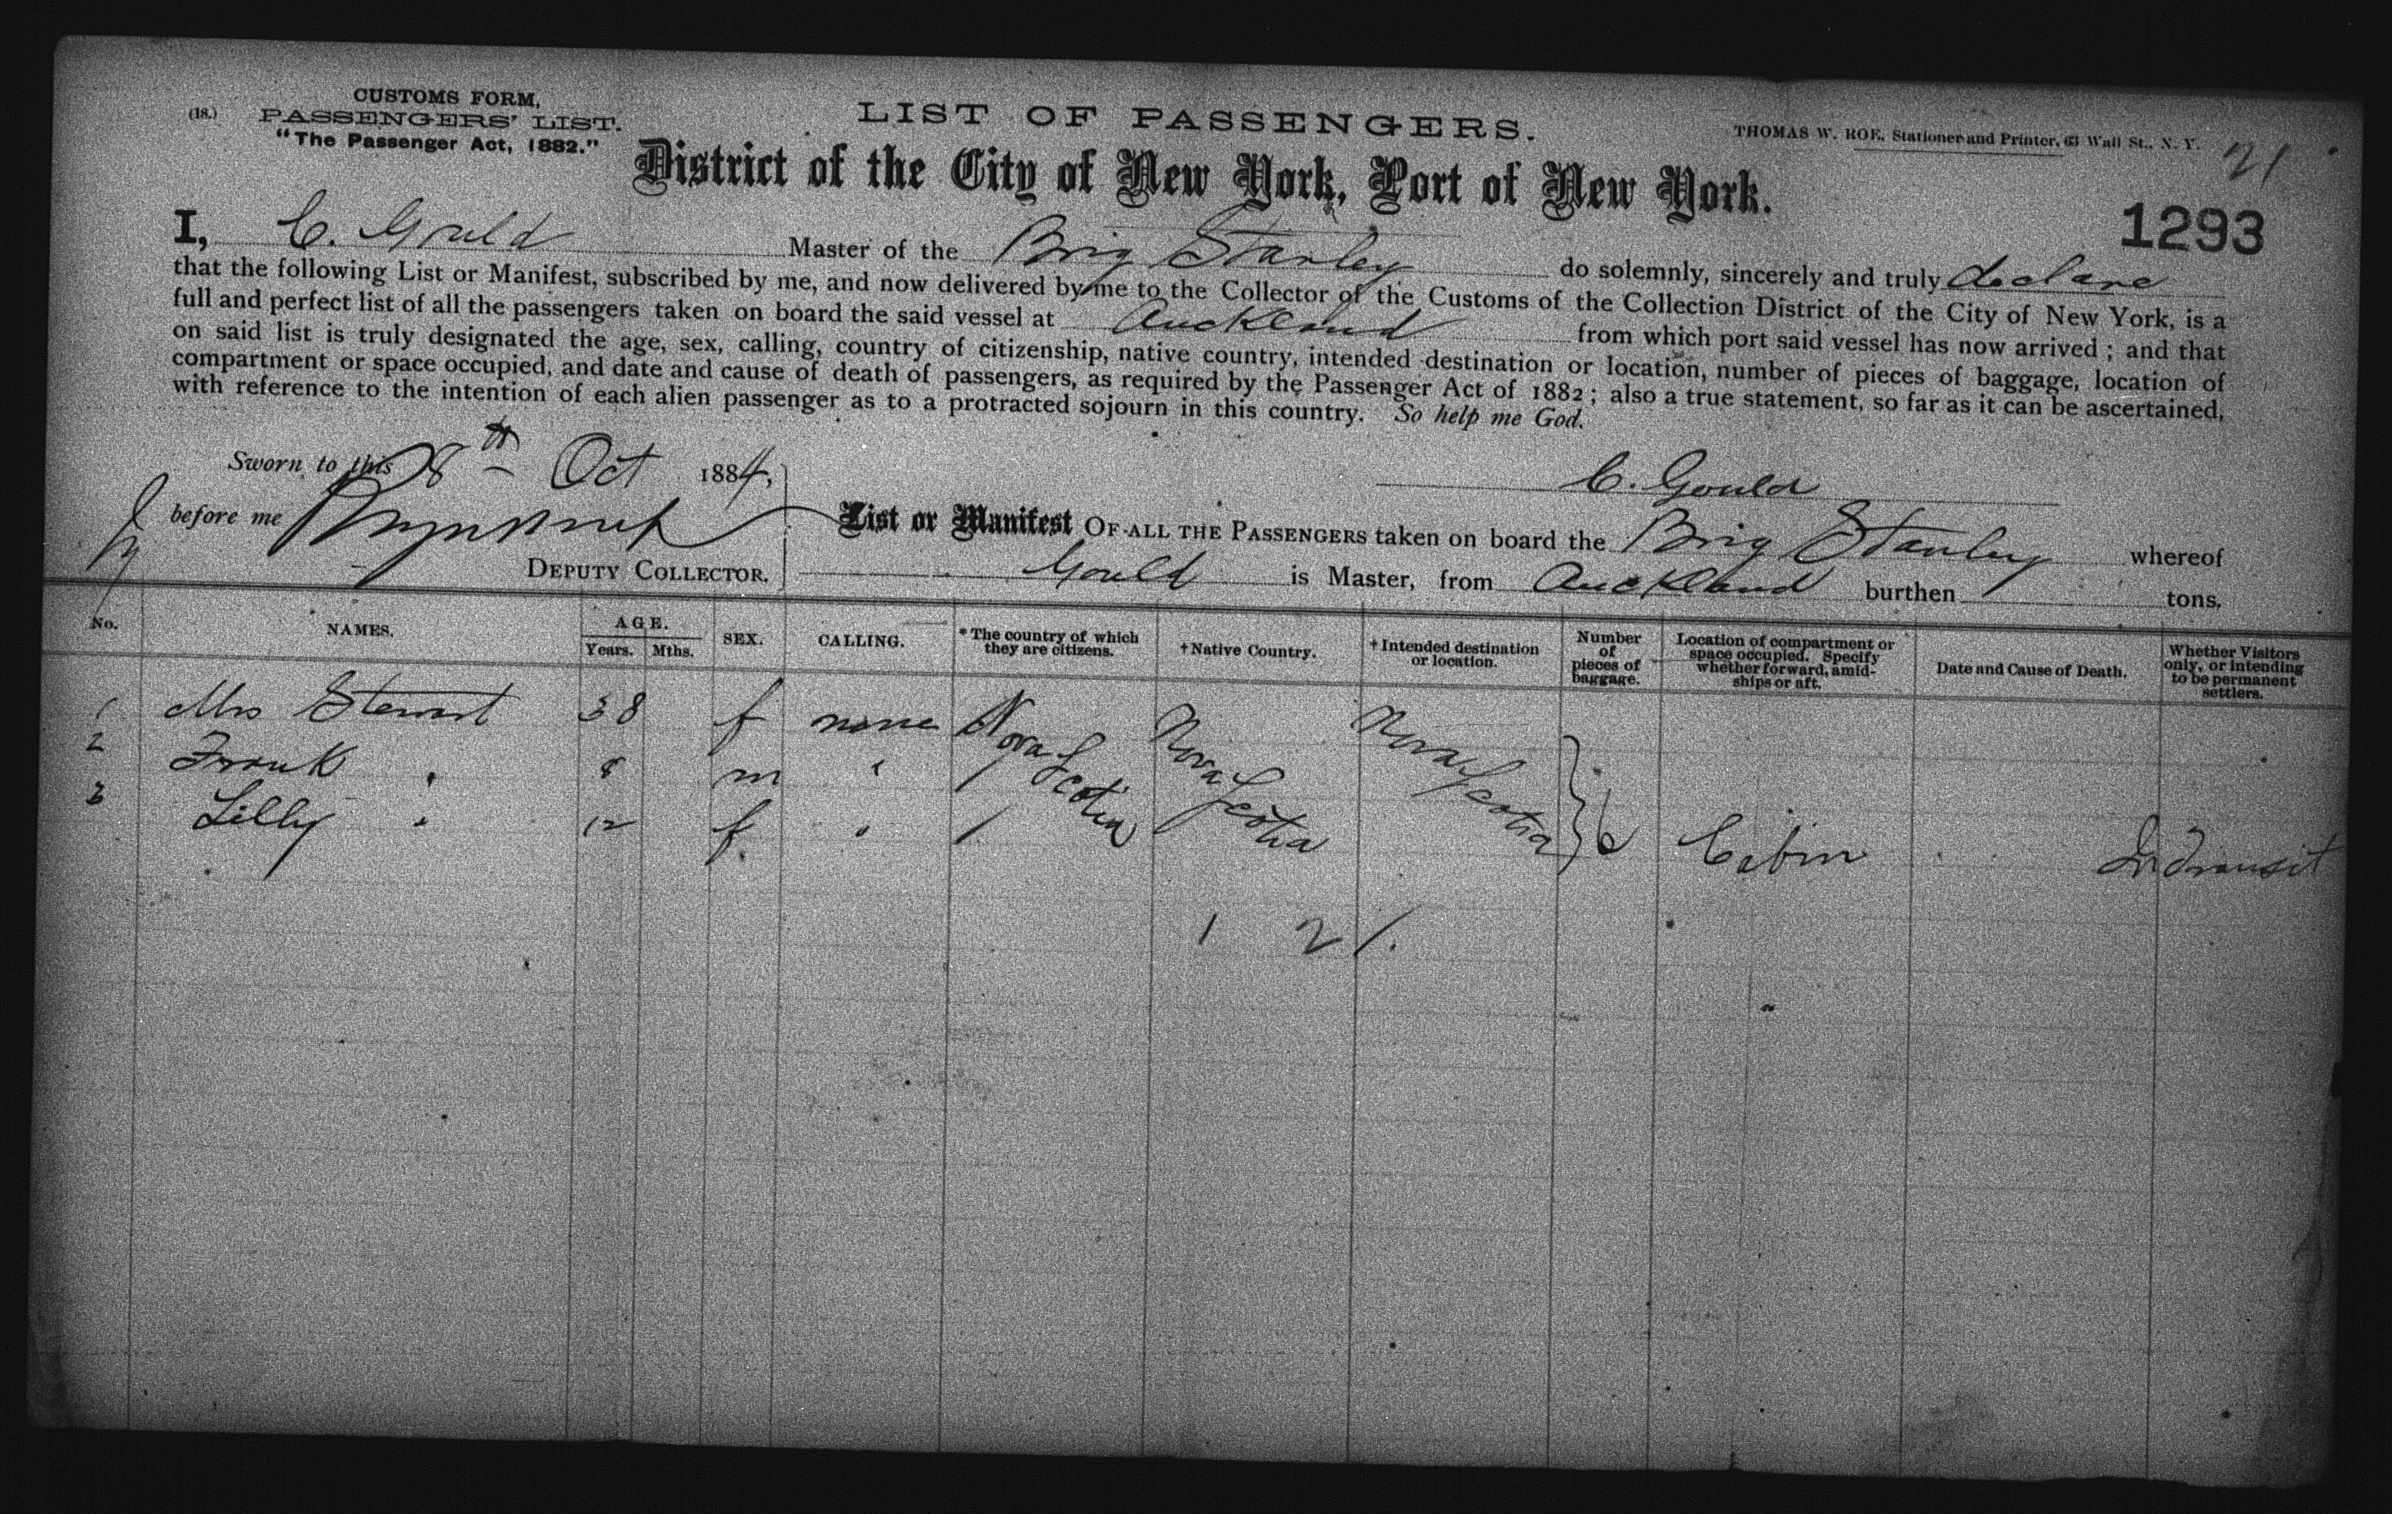 (18.) CUSTOMS FORM,
PASSENGERS' LIST.
"The Passenger Act, 1882."
LIST OF PASSENGERS.
THOMAS W. ROE, Stationer and Printer, 63 Wall St., N. Y.
21
District of the City of New York, Port of New York.
1293
I, C. Gould Master of the Brig Stanley do solemnly, sincerely and truly declare
that the following List or Manifest, subscribed by me, and now delivered by me to the Collector of the Customs of the Collection District of the City of New York, is a
full and perfect list of all the passengers taken on board the said vessel at Auckland from which port said vessel has now arrived ; and that
on said list is truly designated the age, sex, calling, country of citizenship, native country, intended destination or location, number of pieces of baggage, location of
compartment or space occupied, and date and cause of death of passengers, as required by the Passenger Act of 1882 ; also a true statement, so far as it can be ascertained,
with reference to the intention of each alien passenger as to a protracted sojourn in this country. So help me God.
Sworn to this 8th Oct 1884,
C. Gould
before me
DEPUTY COLLECTOR.
List or Manifest OF ALL THE PASSENGERS taken on board the Brig Stanley whereof
Gould is Master, from Auckland burthen tons.
No. NAMES. AGE. Years. Mths. SEX. CALLING. * The country of which they are citizens. † Native Country. † Intended destination or location. Number of pieces of baggage. Location of compartment or space occupied. Specify whether forward, amidships or aft. Date and Cause of Death. Whether Visitors only, or intending to be permanent settlers.
1 Mrs Stewart 38 f none Nova Scotia Nova Scotia Nova Scotia
2 Frank " 8 m "
3 Lilly " 12 f " 6 Cabin In Transit
1 2 1.